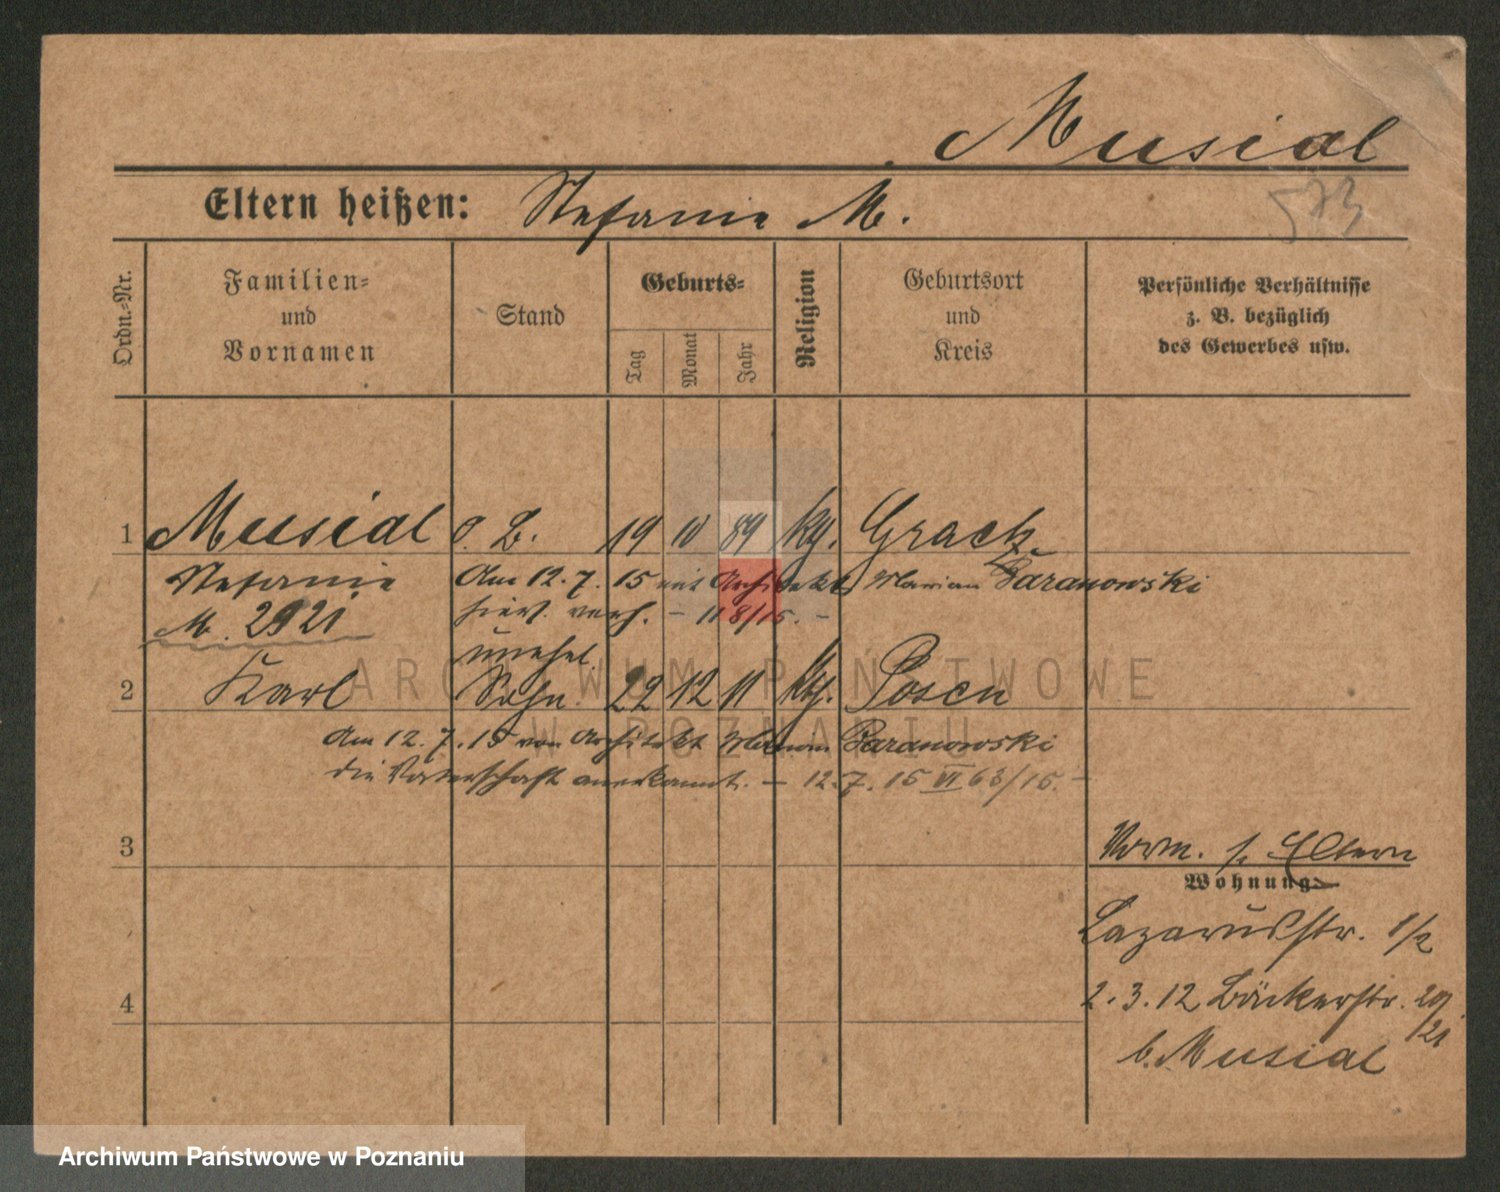 Musial
Eltern heißen: Stefanie M.
573
Ordn.-Nr.
Familien-
und
Vornamen
Stand
Geburts-
Tag
Monat
Jahr
Religion
Geburtsort
und
Kreis
Persönliche Verhältnisse
z. B. bezüglich
des Gewerbes usw.
1 Musial o. B. 19 10 89 kg. Grack
Stefanie Am 12. 7. 15 mit Architekt Marian Baranowski
M. 2921 hier verh. - 118/15. -
unehel.
2 Karl Sohn 22 12 11 kg. Posen
Am 12. 7. 15 von Architekt Marian Baranowski
die Vaterschaft anerkannt. - 12. 7. 15 VI 63/15. -
3
Vorm. s. Eltern
Wohnung
Lazarusstr. 1/2
4
2. 3. 12 Bäckerstr. 20/21
b. Musial
ARCHIWUM PAŃSTWOWE
W POZNANIU
Archiwum Państwowe w Poznaniu